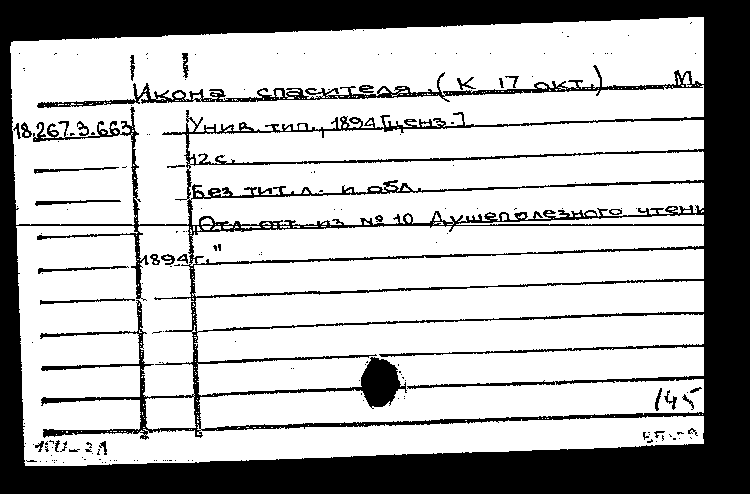 Икона спасителя. (К 17 окт.) М.
18.267.3.663 Унив. тип., 1894 [ценз.]
12 с.
Без тит. л. и обл.
"Отд. отт. из № 10 Душеполезного чтени
1894 г."
145